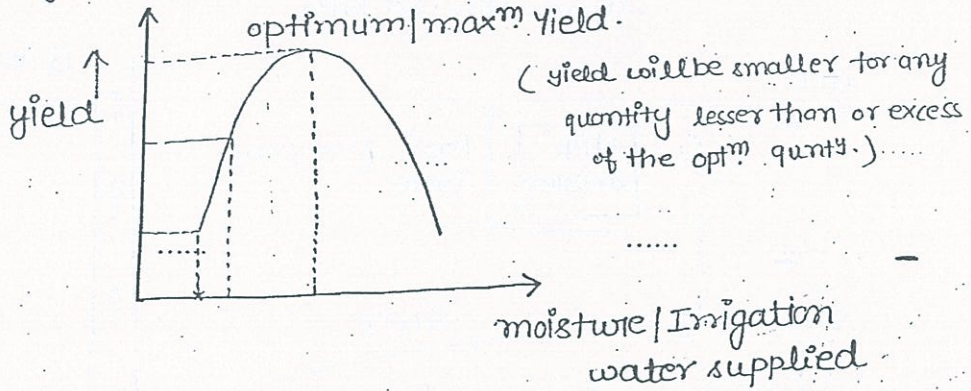 optimum/max^m. Yield.
(yield will be smaller for any
quantity lesser than or excess
of the opt^m. qunt^y.).....
yield
......
......
moisture/Irrigation
water supplied.